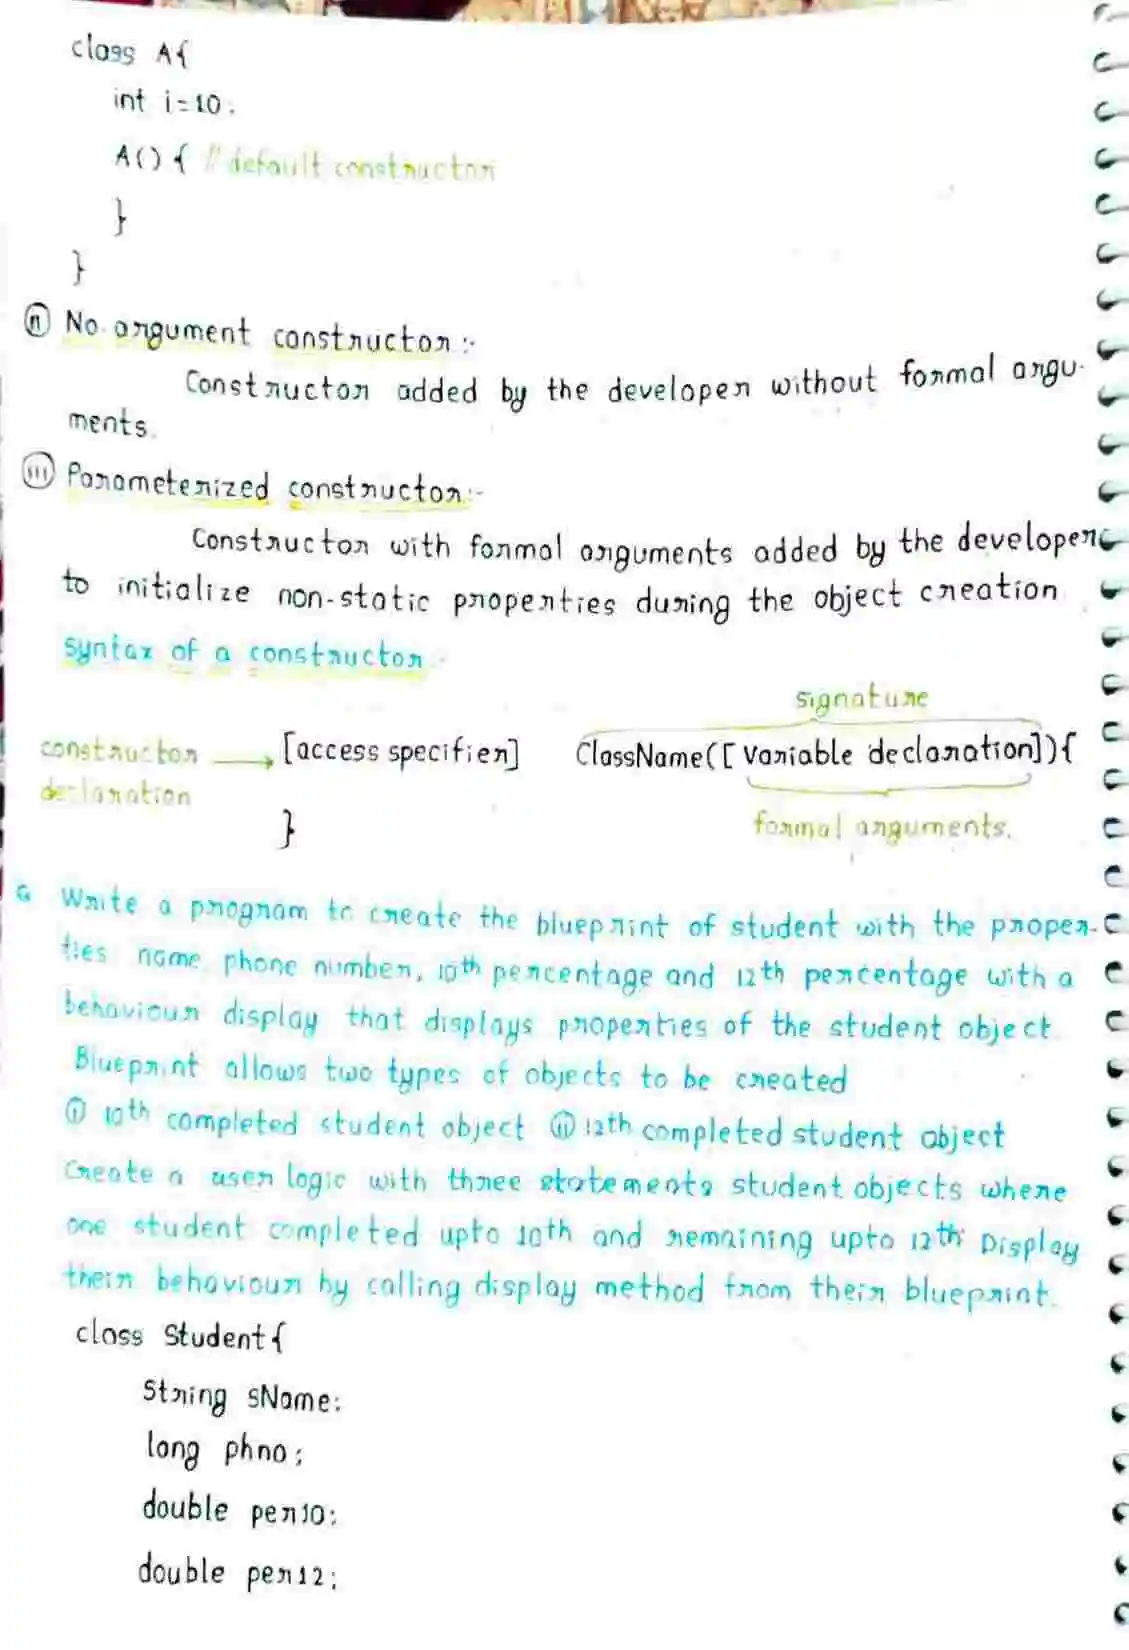 class A{
int i=10;
A() { // default constructor
}
}
(ii) No. argument constructor :-
Constructor added by the developer without formal argu-
ments.
(iii) Parameterized constructor:-
Constructor with formal arguments added by the developer
to initialize non-static properties during the object creation
Syntax of a constructor:-
signature
constructor → [access specifier] ClassName([variable declaration]){
declaration
} formal arguments.
Q Write a program to create the blueprint of student with the proper-
ties name, phone number, 10th percentage and 12th percentage with a
behaviour display that displays properties of the student object.
Blueprint allows two types of objects to be created
(i) 10th completed student object (ii) 12th completed student object
Create a user logic with three statements student objects where
one student completed upto 10th and remaining upto 12th. Display
their behaviour by calling display method from their blueprint.
class Student{
String sName;
long phno;
double per10;
double per12;